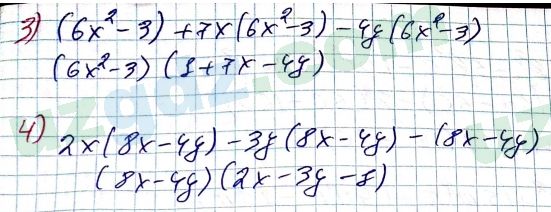 3) (6x² - 3) + 7x(6x² - 3) - 4y(6x² - 3)
(6x² - 3) (1 + 7x - 4y)
4) 2x(8x - 4y) - 3y(8x - 4y) - (8x - 4y)
(8x - 4y) (2x - 3y - 1)